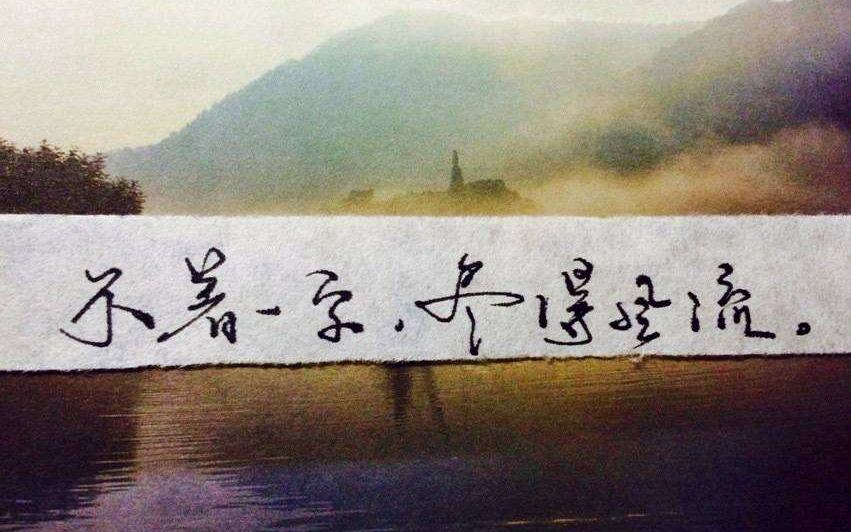 不着一字,尽得风流。